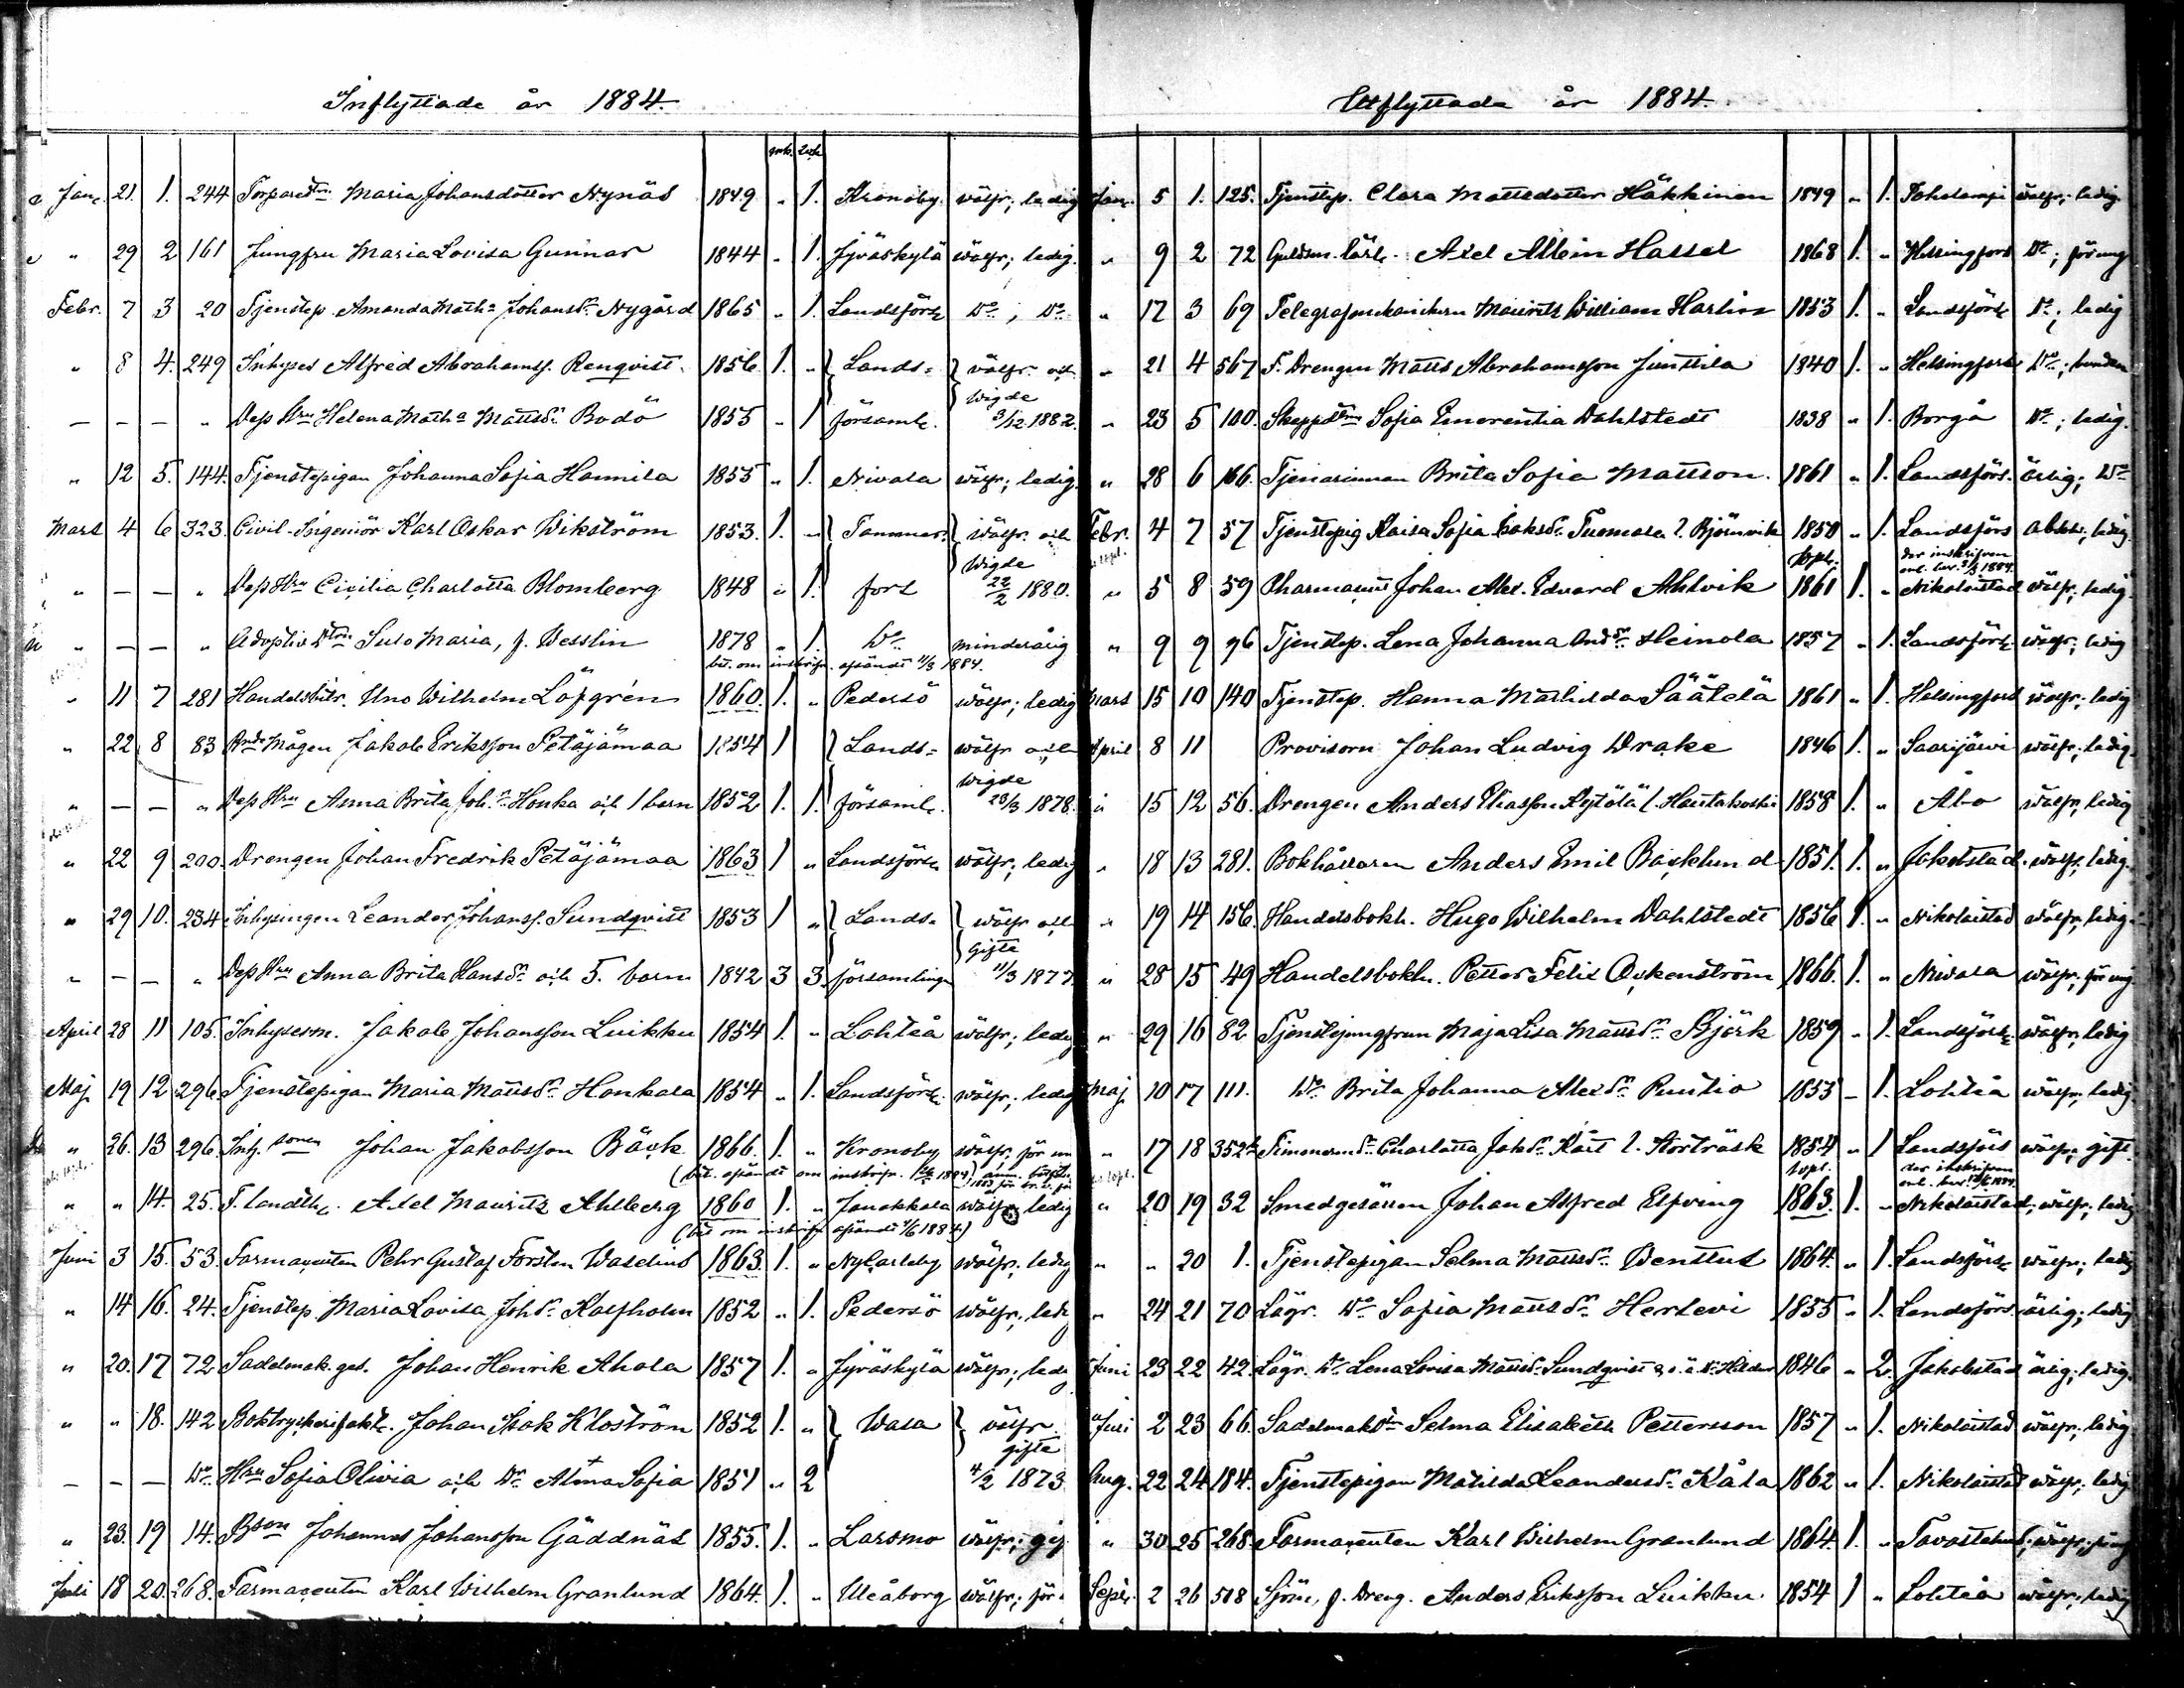 Inflyttade år 1884.
mk. qvk.
Jan. 21. 1. 244 Torparedtrn Maria Johansdotter Nynäs 1849 " 1. Kronoby välfr; ledig
" 29 2 161 Jungfru Maria Lovisa Gunnar 1844 " 1. Jyväskylä välfr; ledig.
Febr. 7 3 20 Tjenstep. Amanda Math:a Johansdr Nygård 1865 " 1. Landsförs. Do, Do
" 8 4. 249 Inhyses Alfred Abrahamss. Renqvist 1856. 1. " Lands= välfr. och
wigde
— — — " Dess Hru Helena Math:a Mattsdr Bodö 1855 " 1 församl. 3/12 1882.
" 12 5. 144. Tjenstepigan Johanna Sofia Hannila 1855 " 1. Nivala välfr; ledig.
Mars 4 6 323. Civil-Ingeniör Karl Oskar Wikström 1853. 1. " Tammer- välfr. och
wigde
" — — " Dess Hru Cicilia Charlotta Blomberg 1848 " 1. fors 22/2 1880.
" — — " Adoptiv Dtrn Sulo Maria, f. Wesslin 1878 " 1. Do minderårig
bet. om inskrifn. afsändt 11/3 1884.
" 11 7 281 Handelsbitr. Uno Wilhelm Löfgrén 1860. 1. " Pedersö välfr; ledig
" 22 8 83 Bnde Mågen Jakob Eriksson Petäjämaa 1854 1 Lands= välfr och
wigde
" — — " Dess Hru Anna Brita Joh.dr Honka och 1 barn 1852 1. 1. församl. 23/3 1878.
" 22 9 200. Drengen Johan Fredrik Petäjämaa 1863 1 " Landsförs. välfr; ledig
" 29 10. 234 Inhysingen Leander Johanss. Sundqvist 1853 1 " Lands- välfr och
gifte
" — — " Dess Hru Anna Brita Hansdr och 5. barn 1842 3 3. församling 11/3 1877
April 28 11 105. Inhysesm. Jakob Johansson Luikku 1854 1. " Lohteå välfr; ledig
Maj 19 12 296 Tjenstepigan Maria Mattsdr Honkala 1854 " 1. Landsförs. välfr; ledig
" 26. 13 296. Inh. sonen Johan Jakobsson Bäck 1866. 1. " Kronoby välfr; för un
(bet. afsändt om inskrifn. 1884)
" " 14. 25. F. landth. Axel Mauritz Ahlberg 1860 1. " Janakkala välfr; ledig
(bet om inskrifn afsändt 4/6 1884)
Juni 3 15. 53. Farmaceuten Pehr Gustaf Torsten Waselius 1863. 1. " NyCarleby välfr; ledig
" 14 16. 24. Tjenstep. Maria Lovisa Johdr Kalfholm 1852 " 1. Pedersö välfr; ledig
" 20. 17 72 Sadelmak. ges. Johan Henrik Ahola 1857 1. " Jyväskylä välfr; ledig
" " 18. 142 Boktryckerifakt. Johan Isak Kloström 1852 1. " Wasa välfr.
gifte
— — — Do Hru Sofia Olivia och Dr Alma Sofia 1851 " 2 4/2 1873
" 23. 19 14. Bson Johannes Johansson Gäddnäs 1855. 1. " Larsmo välfr; gif
Juli 18 20. 268. Farmaceuten Karl Wilhelm Granlund 1864. 1. " Uleåborg välfr; för
Utflyttade år 1884.
Jan. 5 1. 125. Tjenstep. Clara Mattsdotter Häkkinen 1849 " 1. Toholampi välfr; ledig.
" 9 2 72 Guldsm. lärl. Axel Albin Hassel 1868 1. " Helsingfors Do; för ung
" 17 3 69 Telegrafmekanikern Mauritz William Harlin 1853 1. " Landsförs. Do; ledig
" 21 4 567 F. Drengen Matts Abrahamsson Junttila 1840 1. " Helsingfors Do; bunden
" 23 5 100. Skeppsdtrn Sofia Emerentia Dahlstedt 1838 " 1. Borgå Do; ledig.
" 28 6 166. Tjenarinnan Brita Sofia Mattson 1861 " 1. Landsförs. ärlig; Do
Febr. 4 7 57 Tjenstepig Kaisa Sofia Isaksdr Tuomala l. Björnvik 1850 " 1. Landsförs ledig
der inskrifven
" 5 8 59 Pharmaceut Johan Alex. Edvard Ahlvik 1861 1. " Nikolaistad välfr; ledig
" 9 9 96 Tjenstep. Lena Johanna Anddr Heinola 1857 " 1. Landsförs. välfr; ledig
Mars 15 10 140 Tjenstep. Hanna Mathilda Säätelä 1861 " 1. Helsingfors välfr; ledig
April 8 11 Provisorn Johan Ludvig Drake 1846 1. " Saarijärvi välfr; ledig.
" 15 12 56. Drengen Anders Eliasson Kytölä l. Hautakoski 1858 1. " Åbo välfr; ledig
" 18 13 281. Bokhållaren Anders Emil Backlund 1851. 1. " Jakobstad välfr; ledig.
" 19 14 156. Handelsbokh. Hugo Wilhelm Dahlstedt 1856 1. " Nikolaistad välfr; ledig
" 28 15 49 Handelsbokh. Petter Felix Ockenström 1866. 1. " Nivala välfr; för ung
" 29 16 82 Tjenstejungfrun Maja Lisa Mattsdr Björk 1859 " 1. Landsförs. välfr; ledig
Maj 10 17 111. Do Brita Johanna Alexdr Puutio 1853 " 1. Lohteå välfr; ledig
" 17 18 352½ Timmermdr Charlotta Johdr Kåit l. Storträsk 1854 " 1 Landsförs välfr; gift.
der inskrifven
" 20 19 32 Smedgesällen Johan Alfred Elfving 1863. 1. " Nikolaistad; välfr; ledig
" " 20 1. Tjenstepigan Selma Mattsdr Wenttus 1864. " 1. Landsförs. välfr; ledig
" 24 21 70 Lägr. Do Sofia Mattsdr Hertevi 1855 " 1. Landsförs. ärlig; ledig
Juni 23 22 42. Lägr. Do Lena Lovisa Mattsdr Sundqvist 1846 " 2. Jakobstad ärlig; ledig.
Juli 2 23 66. Sadelmakdtrn Selma Elisabeth Pettersson 1857 " 1. Nikolaistad välfr; ledig
Aug. 22 24 184. Tjenstepigan Matilda Leandersdr Kåla 1862 " 1. Nikolaistad välfr; ledig
" 30 25 268. Farmaceuten Karl Wilhelm Granlund 1864. 1. " Tavastehus; välfr;
Sept. 2 26 508 Sjöm, f. Dreng. Anders Eriksson Luikku 1854 1 " Lohteå välfr; ledig